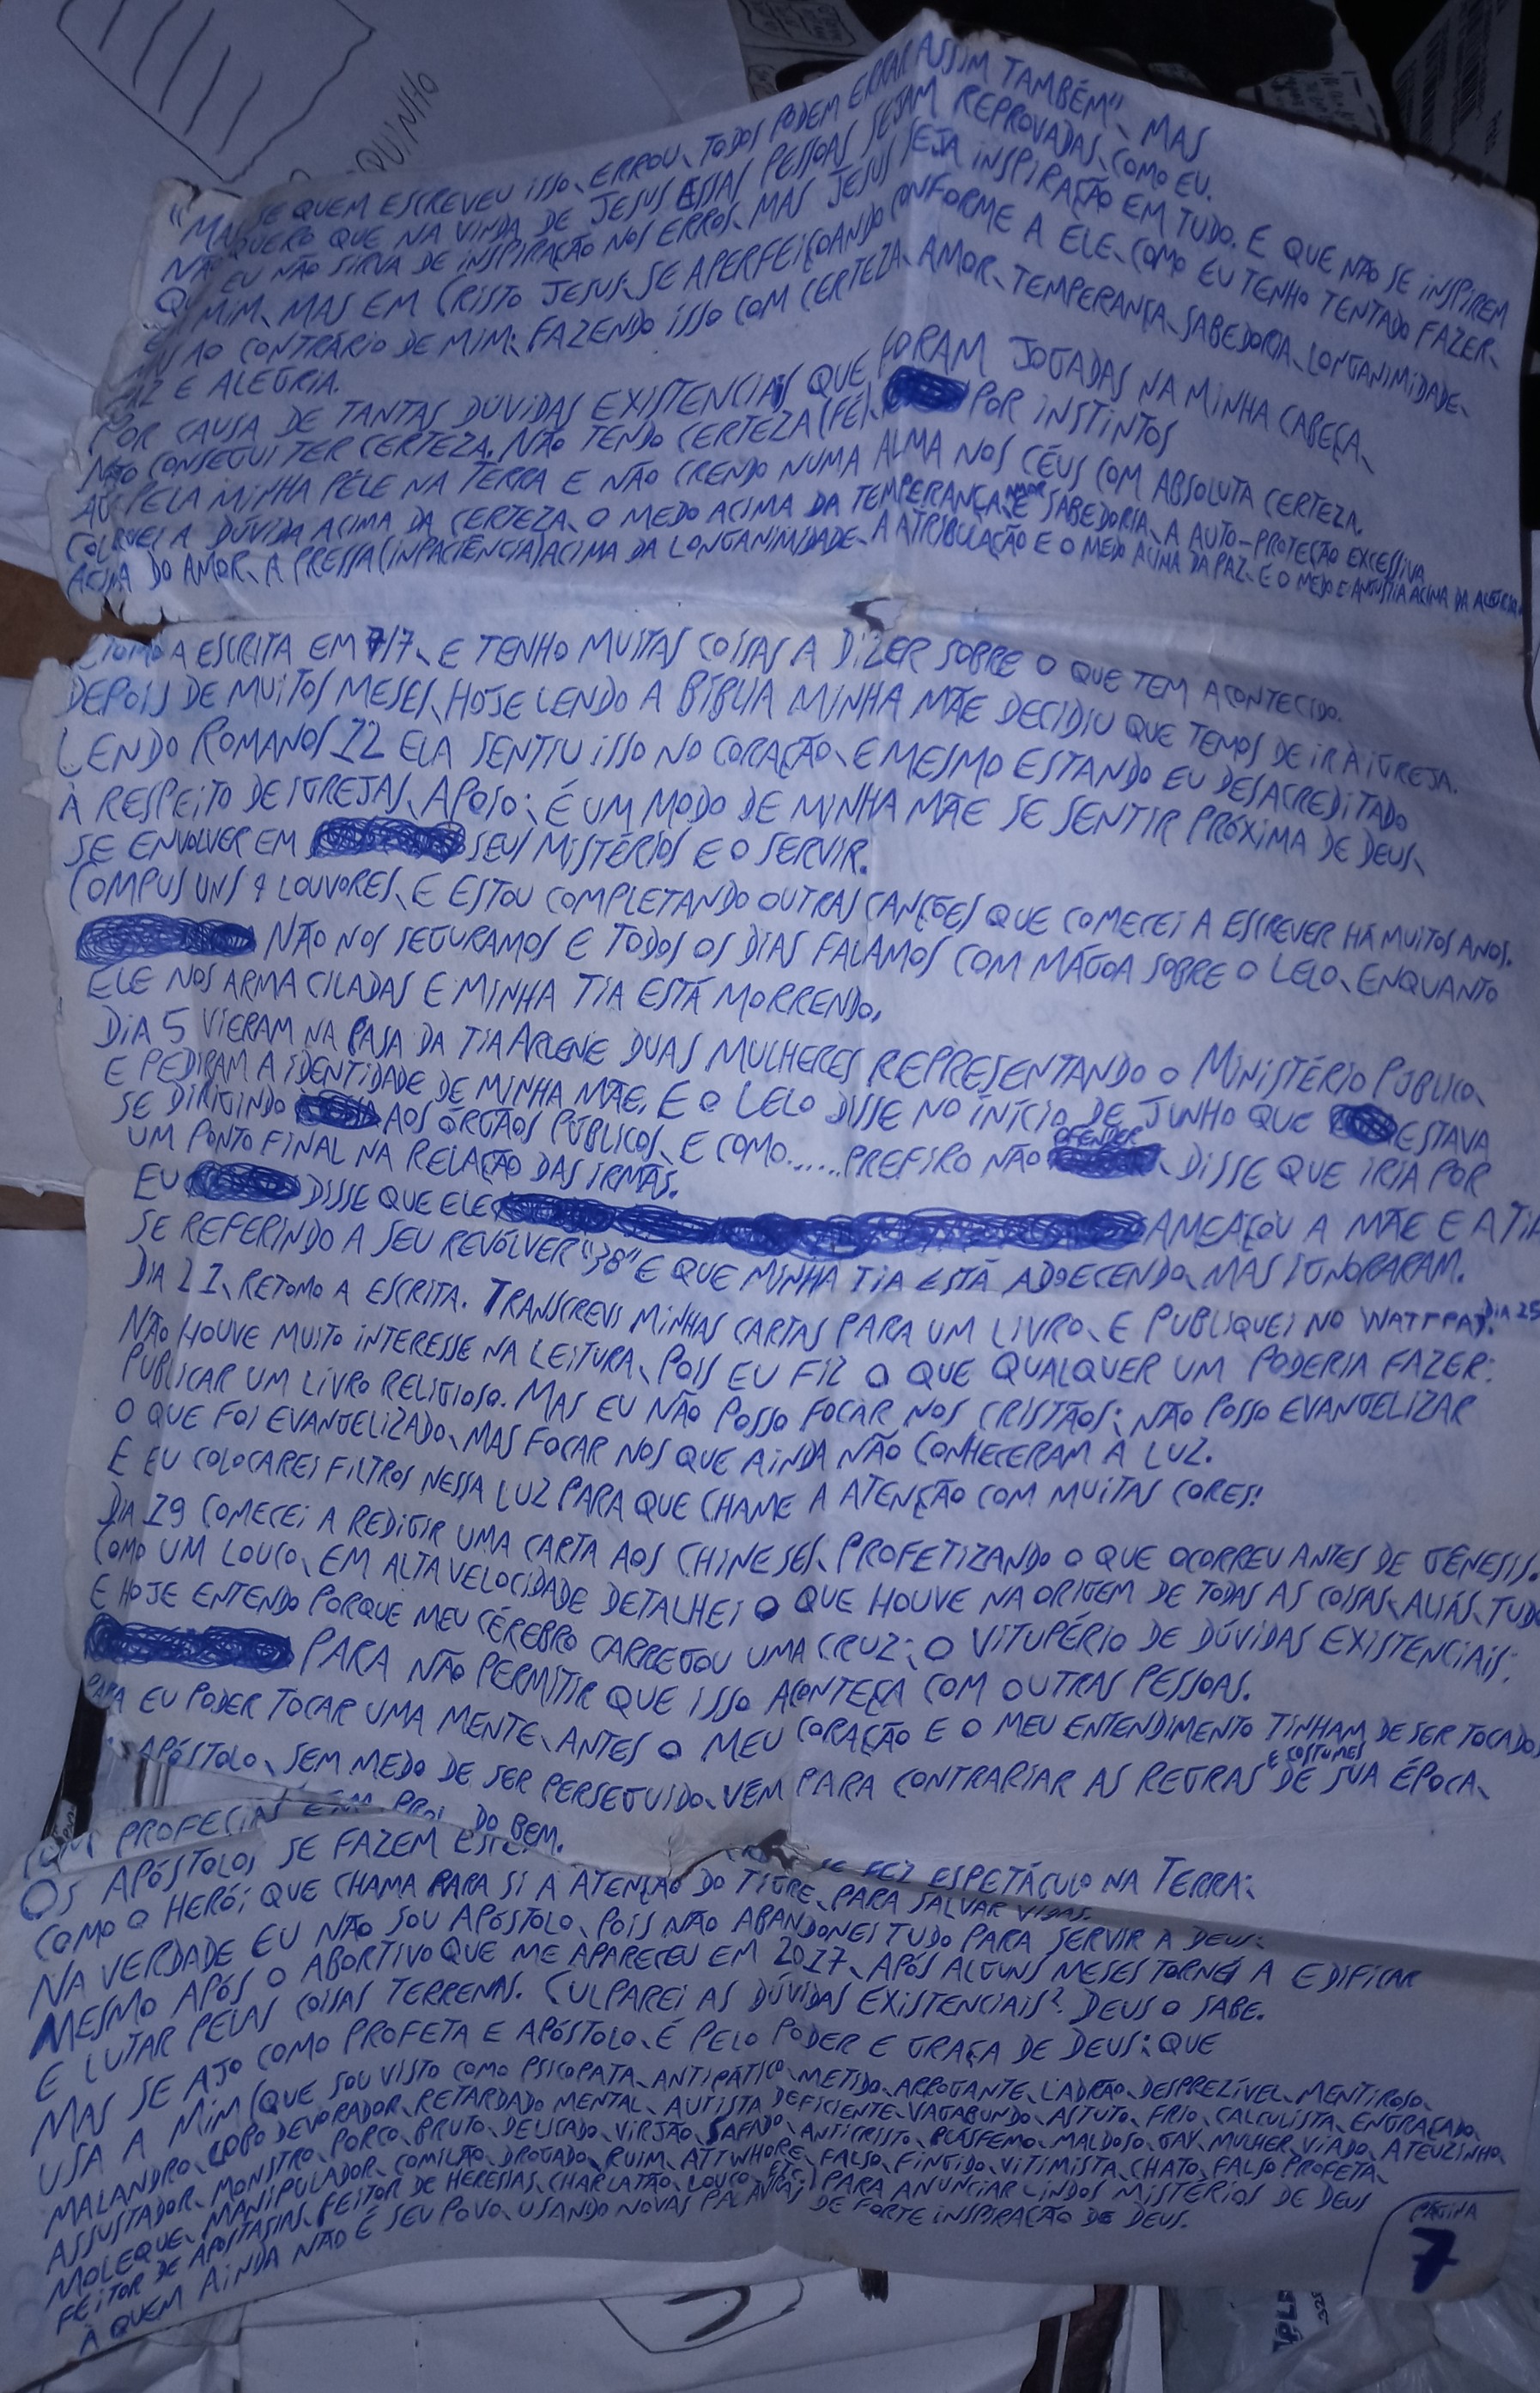 QUINHO
"MAS SE QUEM ESCREVEU ISSO, ERROU, TODOS PODEM ERRAR ASSIM TAMBÉM", MAS
NÃO QUERO QUE NA VINDA DE JESUS ESSAS PESSOAS SEJAM REPROVADAS, COMO EU.
QUE EU NÃO SIRVA DE INSPIRAÇÃO NOS ERROS, MAS JESUS SEJA INSPIRAÇÃO EM TUDO. E QUE NÃO SE INSPIREM
EM MIM, MAS EM CRISTO JESUS, SE APERFEIÇOANDO CONFORME A ELE, COMO EU TENHO TENTADO FAZER,
AO CONTRÁRIO DE MIM: FAZENDO ISSO COM CERTEZA, AMOR, TEMPERANÇA, SABEDORIA, LONGANIMIDADE,
PAZ E ALEGRIA.
POR CAUSA DE TANTAS DÚVIDAS EXISTENCIAIS QUE FORAM JOGADAS NA MINHA CABEÇA,
NÃO CONSEGUI TER CERTEZA. NÃO TENDO CERTEZA (FÉ), POR INSTINTOS
PELA MINHA PELE NA TERRA E NÃO CRENDO NUMA ALMA NOS CÉUS COM ABSOLUTA CERTEZA.
COLOQUEI A DÚVIDA ACIMA DA CERTEZA, O MEDO ACIMA DA TEMPERANÇA E SABEDORIA, A AUTO-PROTEÇÃO EXCESSIVA
ACIMA DO AMOR, A PRESSA (INPACIÊNCIA) ACIMA DA LONGANIMIDADE, A ATRIBULAÇÃO E O MEDO ACIMA DA PAZ, E O MEDO E ANGÚSTIA ACIMA DA ALEGRIA.
RETOMO A ESCRITA EM 7/7, E TENHO MUITAS COISAS A DIZER SOBRE O QUE TEM ACONTECIDO.
DEPOIS DE MUITOS MESES, HOJE LENDO A BÍBLIA MINHA MÃE DECIDIU QUE TEMOS DE IR À IGREJA.
LENDO ROMANOS 12 ELA SENTIU ISSO NO CORAÇÃO, E MESMO ESTANDO EU DESACREDITADO
À RESPEITO DE IGREJAS, APOIO: É UM MODO DE MINHA MÃE SE SENTIR PRÓXIMA DE DEUS,
SE ENVOLVER EM SEUS MISTÉRIOS E O SERVIR.
COMPUS UNS 4 LOUVORES, E ESTOU COMPLETANDO OUTRAS CANÇÕES QUE COMECEI A ESCREVER HÁ MUITOS ANOS.
NÃO NOS SEGURAMOS E TODOS OS DIAS FALAMOS COM MÁGOA SOBRE O LELO, ENQUANTO
ELE NOS ARMA CILADAS E MINHA TIA ESTÁ MORRENDO.
DIA 5 VIERAM NA CASA DA TIA ARLENE DUAS MULHERES REPRESENTANDO O MINISTÉRIO PÚBLICO,
E PEDIRAM A IDENTIDADE DE MINHA MÃE. E O LELO DISSE NO INÍCIO DE JUNHO QUE ESTAVA
SE DIRIGINDO AOS ÓRGÃOS PÚBLICOS, E COMO......PREFIRO NÃO OFENDER, DISSE QUE IRIA POR
UM PONTO FINAL NA RELAÇÃO DAS IRMÃS.
EU DISSE QUE ELE AMEAÇOU A MÃE E A TIA
SE REFERINDO A SEU REVÓLVER "38" E QUE MINHA TIA ESTÁ ADOECENDO, MAS IGNORARAM.
DIA 21, RETOMO A ESCRITA. TRANSCREVI MINHAS CARTAS PARA UM LIVRO, E PUBLIQUEI NO WATTPAD. DIA 25
NÃO HOUVE MUITO INTERESSE NA LEITURA, POIS EU FIZ O QUE QUALQUER UM PODERIA FAZER:
PUBLICAR UM LIVRO RELIGIOSO. MAS EU NÃO POSSO FOCAR NOS CRISTÃOS: NÃO POSSO EVANGELIZAR
O QUE FOI EVANGELIZADO, MAS FOCAR NOS QUE AINDA NÃO CONHECERAM A LUZ.
E EU COLOCAREI FILTROS NESSA LUZ PARA QUE CHAME A ATENÇÃO COM MUITAS CORES!
DIA 19 COMECEI A REDIGIR UMA CARTA AOS CHINESES, PROFETIZANDO O QUE OCORREU ANTES DE GÊNESIS.
COMO UM LOUCO, EM ALTA VELOCIDADE DETALHEI O QUE HOUVE NA ORIGEM DE TODAS AS COISAS, ALIÁS, TUDO
E HOJE ENTENDO PORQUE MEU CÉREBRO CARREGOU UMA CRUZ: O VITUPÉRIO DE DÚVIDAS EXISTENCIAIS:
PARA NÃO PERMITIR QUE ISSO ACONTEÇA COM OUTRAS PESSOAS.
PARA EU PODER TOCAR UMA MENTE, ANTES O MEU CORAÇÃO E O MEU ENTENDIMENTO TINHAM DE SER TOCADOS
APÓSTOLO, SEM MEDO DE SER PERSEGUIDO, VEM PARA CONTRARIAR AS REGRAS E COSTUMES DE SUA ÉPOCA,
COM PROFECIAS EM PROL DO BEM.
OS APÓSTOLOS SE FAZEM SE FEZ ESPETÁCULO NA TERRA:
COMO O HERÓI QUE CHAMA PARA SI A ATENÇÃO DO TIGRE, PARA SALVAR VIDAS.
NA VERDADE EU NÃO SOU APÓSTOLO, POIS NÃO ABANDONEI TUDO PARA SERVIR A DEUS:
MESMO APÓS O ABORTIVO QUE ME APARECEU EM 2017, APÓS ALGUNS MESES TORNEI A EDIFICAR
E LUTAR PELAS COISAS TERRENAS. CULPAREI AS DÚVIDAS EXISTENCIAIS? DEUS O SABE.
MAS SE AJO COMO PROFETA E APÓSTOLO, É PELO PODER E GRAÇA DE DEUS: QUE
USA A MIM (QUE SOU VISTO COMO PSICOPATA, ANTIPÁTICO, METIDO, ARROGANTE, LADRÃO, DESPREZÍVEL, MENTIROSO,
MALANDRO, LOBO DEVORADOR, RETARDADO MENTAL, AUTISTA, DEFICIENTE, VAGABUNDO, ASTUTO, FRIO, CALCULISTA, ENGRAÇADO,
ASSUSTADOR, MONSTRO, PORCO, BRUTO, DELICADO, VIRJÃO, SAFADO, ANTICRISTO, BLÁSFEMO, MALDOSO, GAY, MULHER, VIADO, ATEUZINHO,
MOLEQUE, MANIPULADOR, COMILÃO, DROGADO, RUIM, ATTWHORE, FALSO, FINGIDO, VITIMISTA, CHATO, FALSO PROFETA,
FEITOR DE APOSTASIAS, FEITOR DE HERESIAS, CHARLATÃO, LOUCO, ETC.) PARA ANUNCIAR LINDOS MISTÉRIOS DE DEUS
A QUEM AINDA NÃO É SEU POVO, USANDO NOVAS PALAVRAS DE FORTE INSPIRAÇÃO DE DEUS.
PÁGINA
7